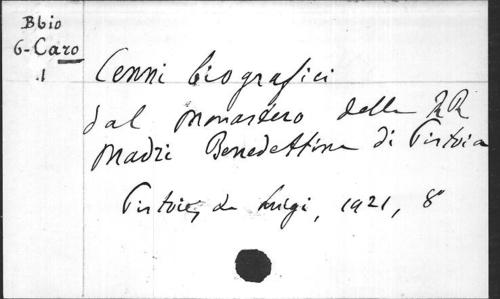 Bbio
6-Caro
.1
Cenni biografici
dal monastero delle RR
Madri Benedettine di Pistoia
Pistoia, da Luigi, 1921, 8°